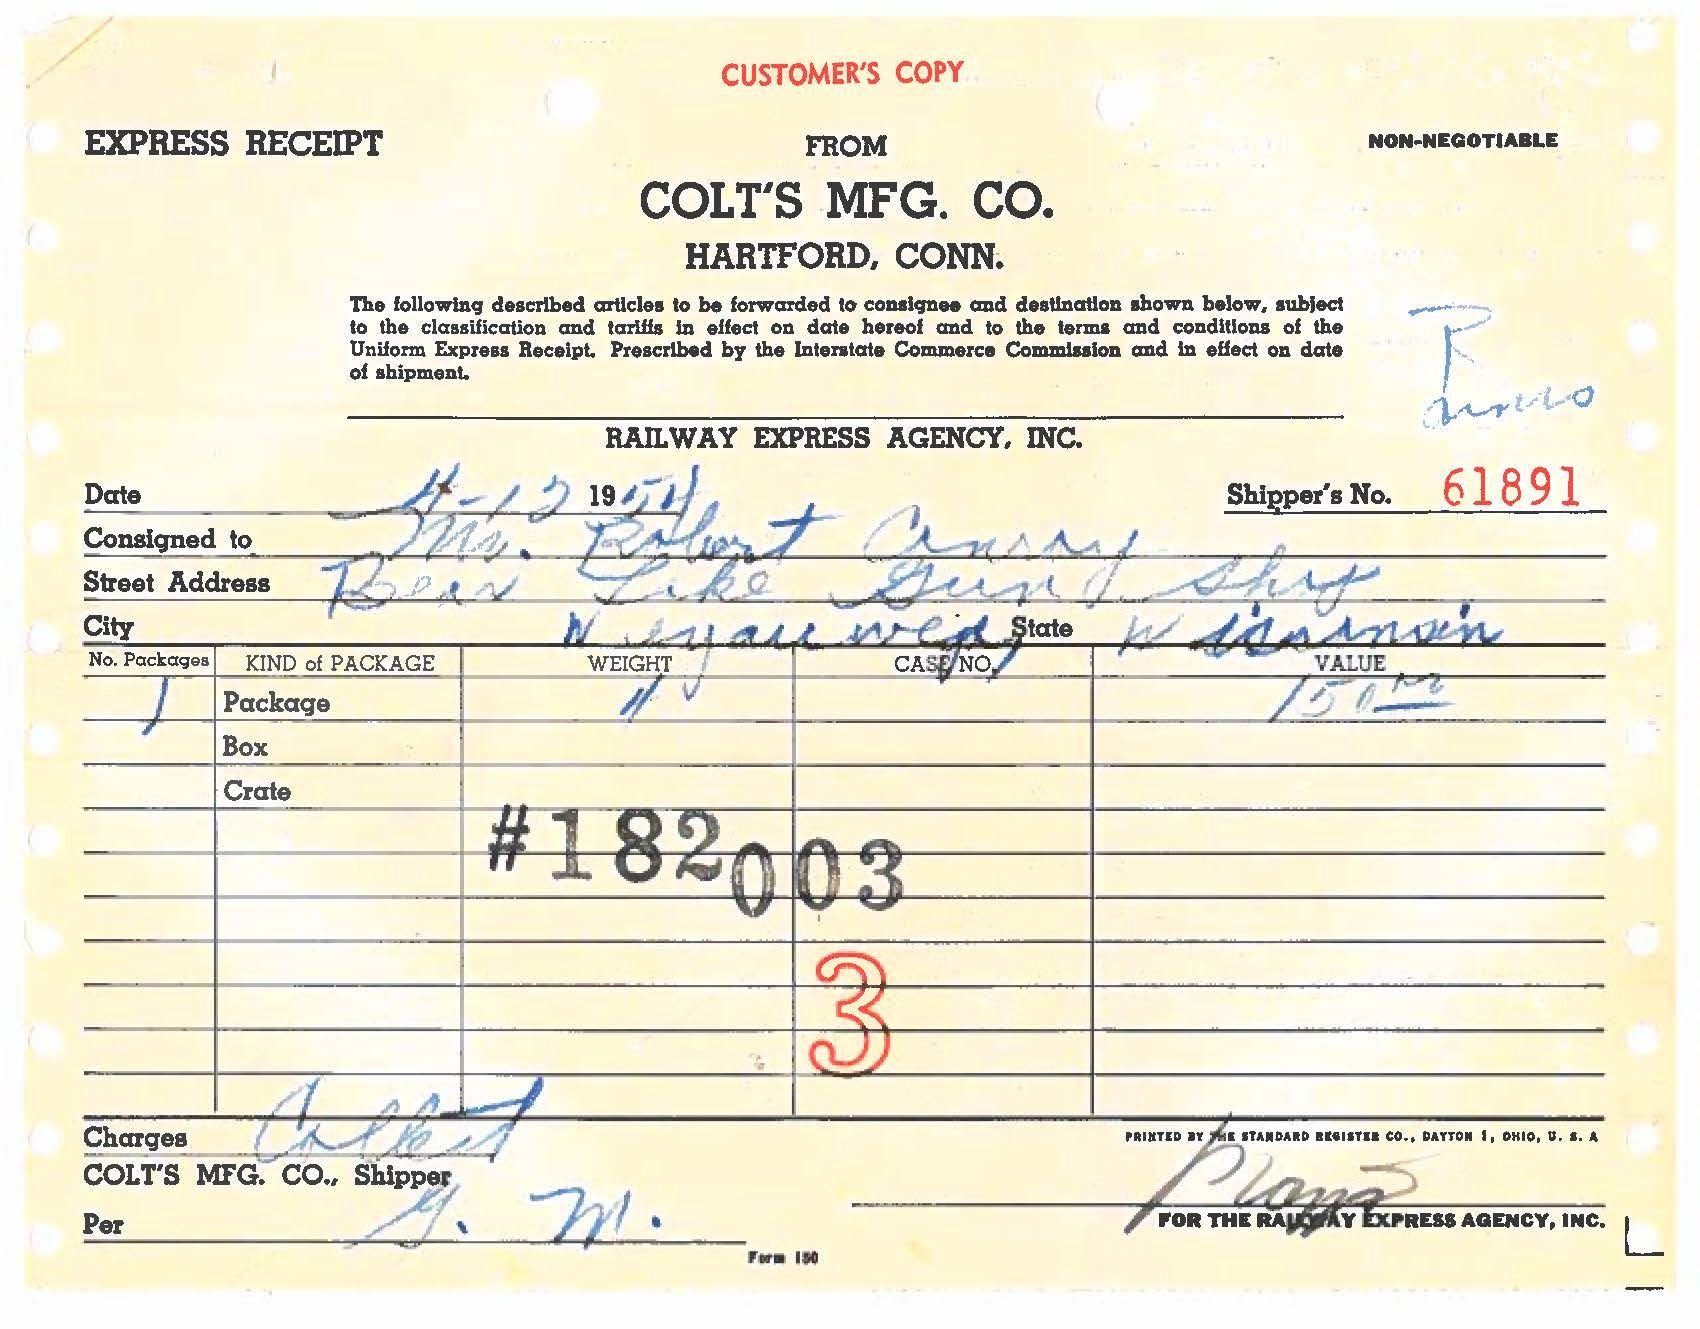 CUSTOMER'S COPY
EXPRESS RECEIPT FROM NON-NEGOTIABLE
COLT'S MFG. CO.
HARTFORD, CONN.
The following described articles to be forwarded to consignee and destination shown below, subject
to the classification and tariffs in effect on date hereof and to the terms and conditions of the
Uniform Express Receipt. Prescribed by the Interstate Commerce Commission and in effect on date
of shipment.
RAILWAY EXPRESS AGENCY, INC.
Date 4-12 1954 Shipper's No. 61891
Consigned to Mr. Robert Conroy
Street Address Bear Lake Gun Shop
City State Wisconsin
No. Packages KIND of PACKAGE WEIGHT CASE NO. VALUE
1 Package 4 150
Box
Crate
#182003
3
Charges Collect
PRINTED BY THE STANDARD REGISTER CO., DAYTON 1, OHIO, U. S. A
COLT'S MFG. CO., Shipper
Per G. M. FOR THE RAILWAY EXPRESS AGENCY, INC.
Form 150